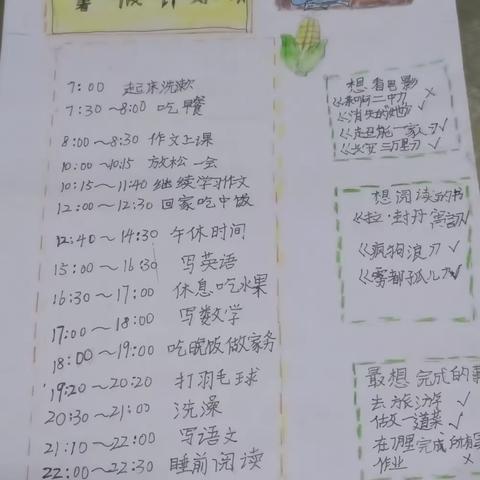 暑假计划
7:00 起床洗漱
7:30～8:00 吃早餐
8:00～8:30 作文上课
10:00～10:15 放松一会
10:15～11:40 继续学习作文
12:00～12:30 回家吃中饭
12:40～14:30 午休时间
15:00～16:30 写英语
16:30～17:00 休息吃水果
17:00～18:00 写数学
18:00～19:00 吃晚饭做家务
19:20～20:20 打羽毛球
20:30～21:00 洗澡
21:10～22:00 写语文
22:00～22:30 睡前阅读
想看电影
《消失的她》✓
《超能一家人》✓
《长安三万里》✓
想阅读的书
《拉·封丹寓言》
《疯狗浪》✓
《雾都孤儿》✓
最想完成的事
去旅游 ✓
做一道菜 ✓
作业 ×